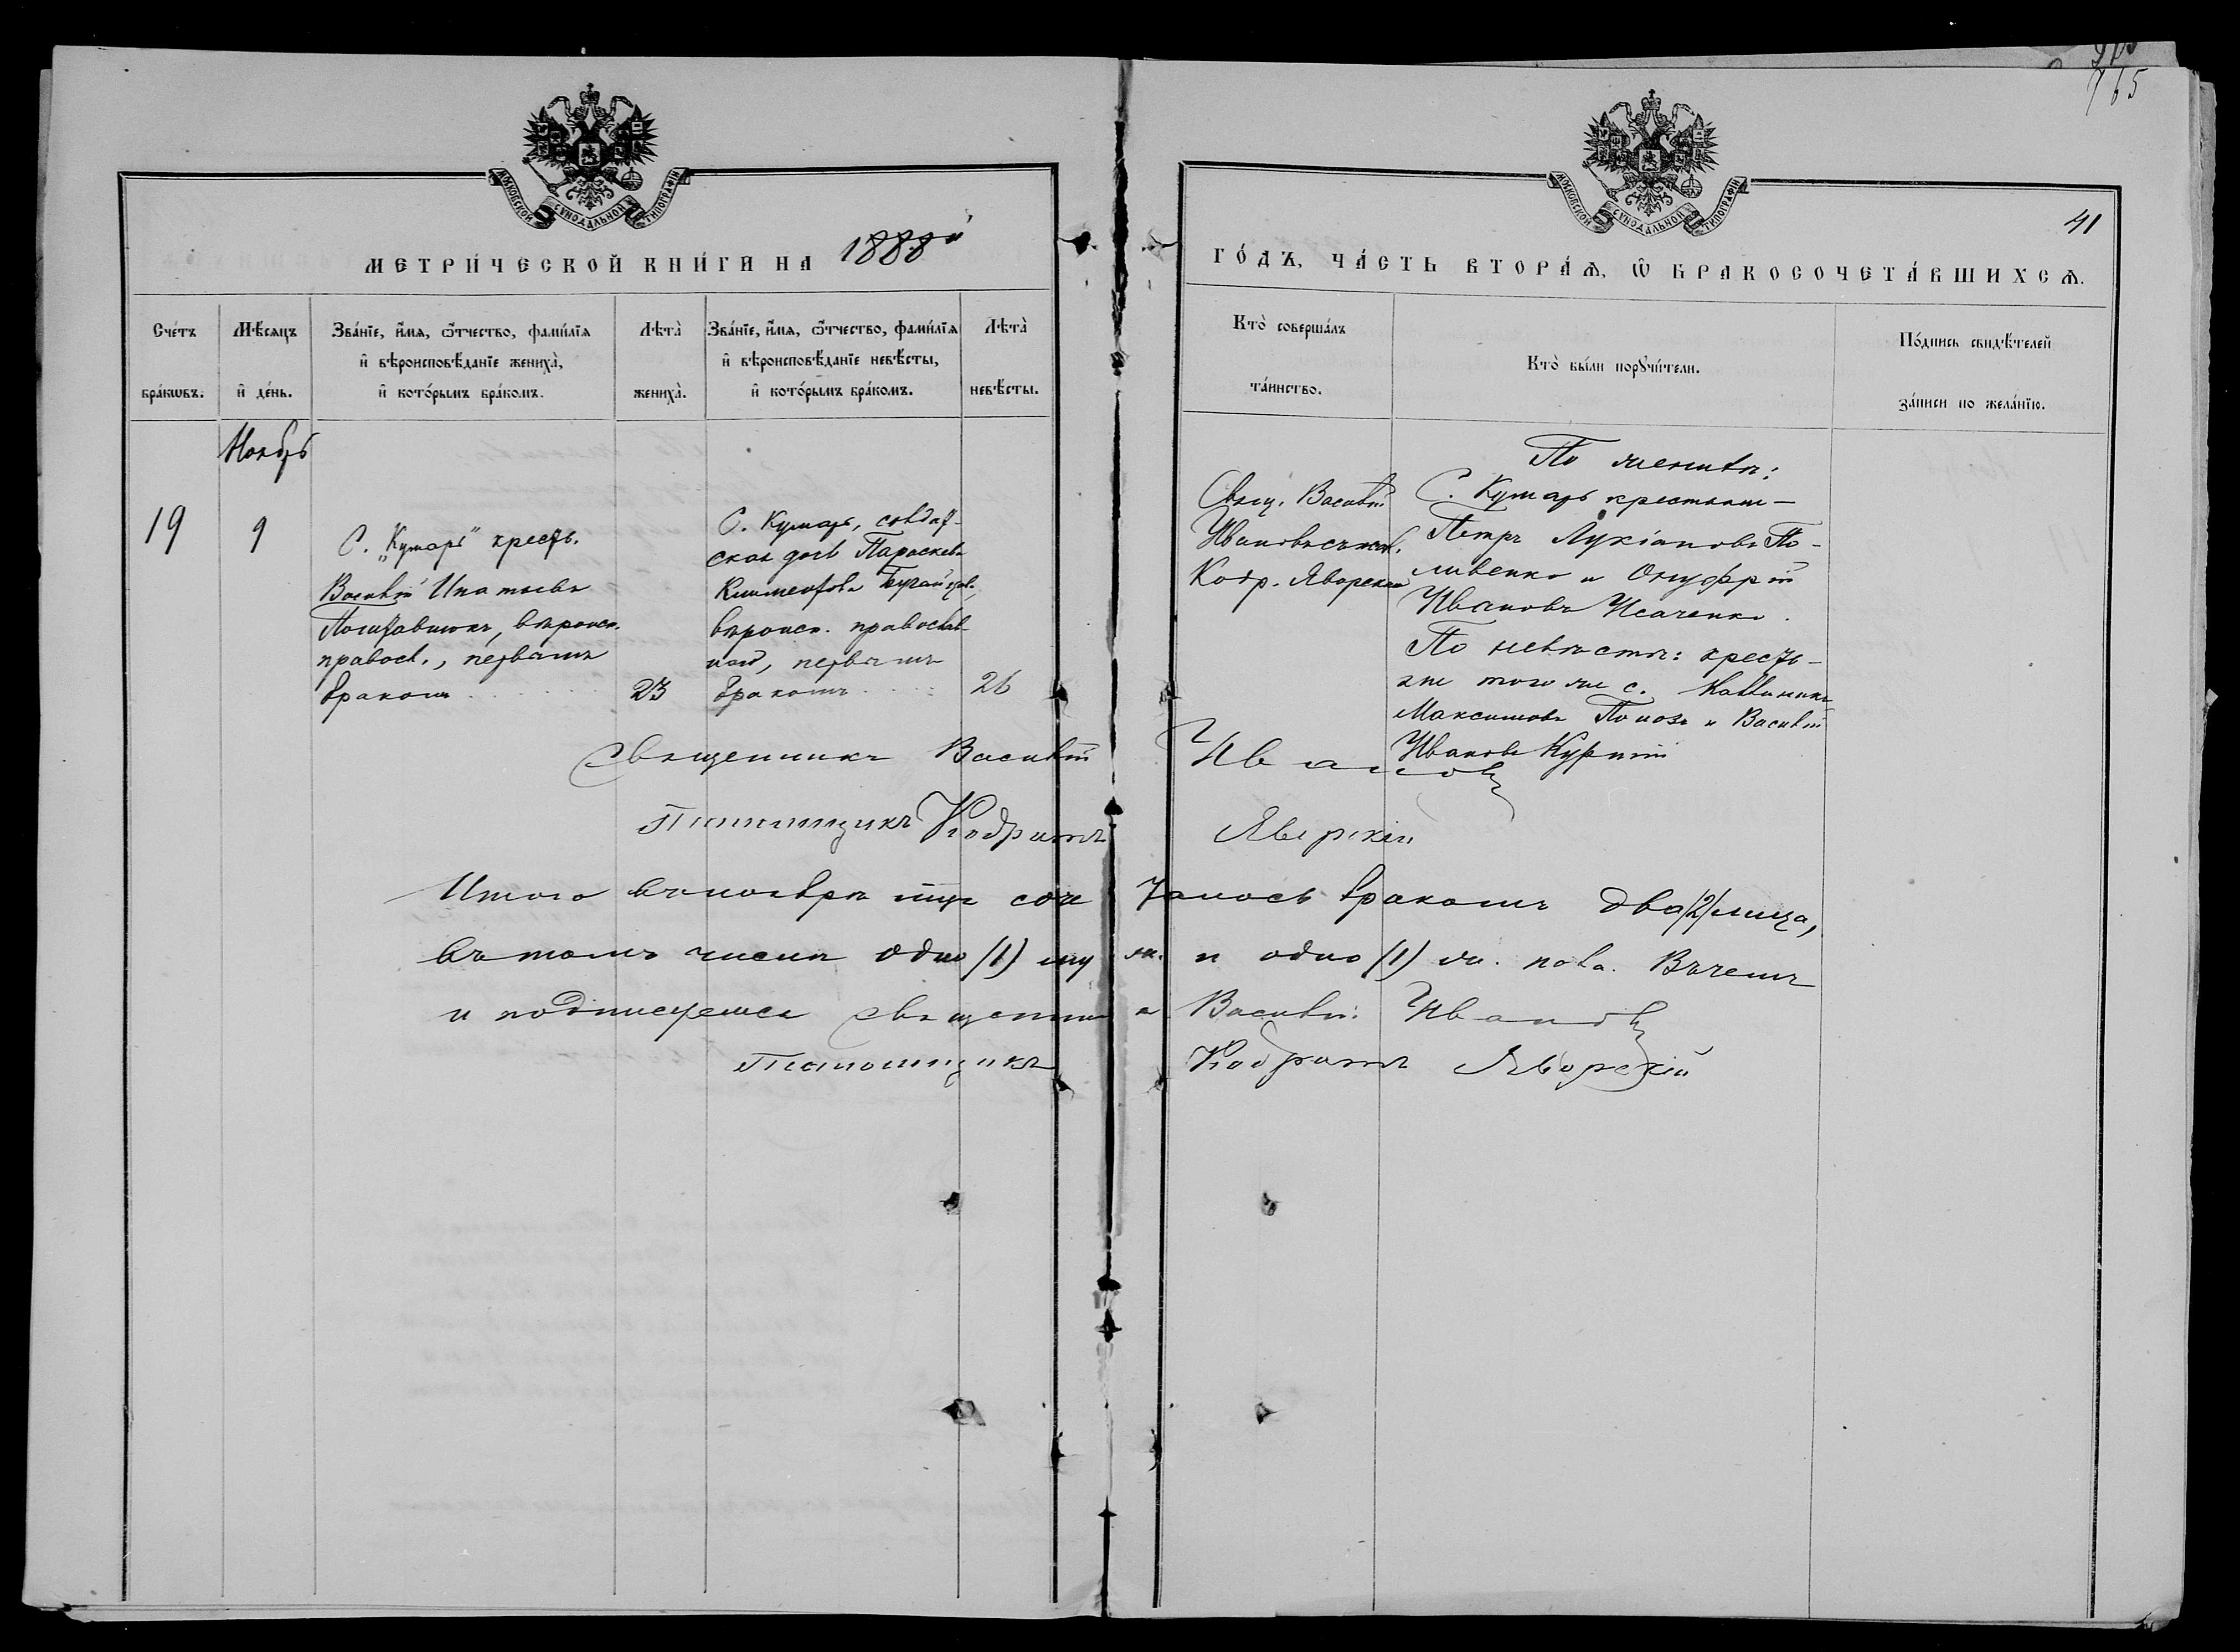 765
МОСКОВСКОЙ СѴНОДАЛЬНОЙ ТИПОГРАФІИ
МОСКОВСКОЙ СѴНОДАЛЬНОЙ ТИПОГРАФІИ
41
МЕТРИ́ЧЕСКОЙ КНИ́ГИ НА 1888й
ГО́ДЪ, ЧА́СТЬ ВТОРА́Ѧ, Ѡ҆ БРАКОСОЧЕТА́ВШИХСѦ.
Сче́тъ бра́кѡвъ.
Мѣ́сѧцъ и҆ де́нь.
Зва́нїе, и҆́мѧ, ѻ҆́тчество, фами́лїѧ
и҆ вѣроисповѣ́данїе жениха̀,
и҆ кото́рымъ бра́комъ.
Лѣта̀ жениха̀.
Зва́нїе, и҆́мѧ, ѻ҆́тчество, фами́лїѧ
и҆ вѣроисповѣ́данїе невѣ́сты,
и҆ кото́рымъ бра́комъ.
Лѣта̀ невѣ́сты.
Кто̀ соверша́лъ та́инство.
Кто̀ бы́ли порꙋчи́тели.
По́дпись свидѣ́телей за́писи по жела́нїю.
Ноябрь
19
9
С. „Кумары" крестьян.
Василій Игнатьевъ
вѣроисп.
правосл., первымъ
бракомъ
23
С. Кумары, солдат-
ская дочь Параскева
Климентова
вѣроисп. православ-
наго, первымъ
бракомъ
26
Свящ. Василій
Ивановъ съ псал.
Кодр. Яворскимъ
По женихѣ:
С. Кумары крестьяне –
Петръ Лукіановъ По-
ливенко и Онуфрій
Ивановъ Исаченко.
По невѣстѣ: кресть-
яне того же с. Каллиникъ
Максимовъ Попозъ и Василій
Ивановъ Курпій
Священникъ Василій Ивановъ
Псаломщикъ Кодратъ Яворскій
Итого въ ноябрѣ мцѣ сочеталось бракомъ два /2/ лица,
въ томъ числѣ одно /1/ муж. и одно /1/ ж. пола. Въ чемъ
и подписуемся священникъ Василій Ивановъ
Псаломщикъ Кодратъ Яворскій